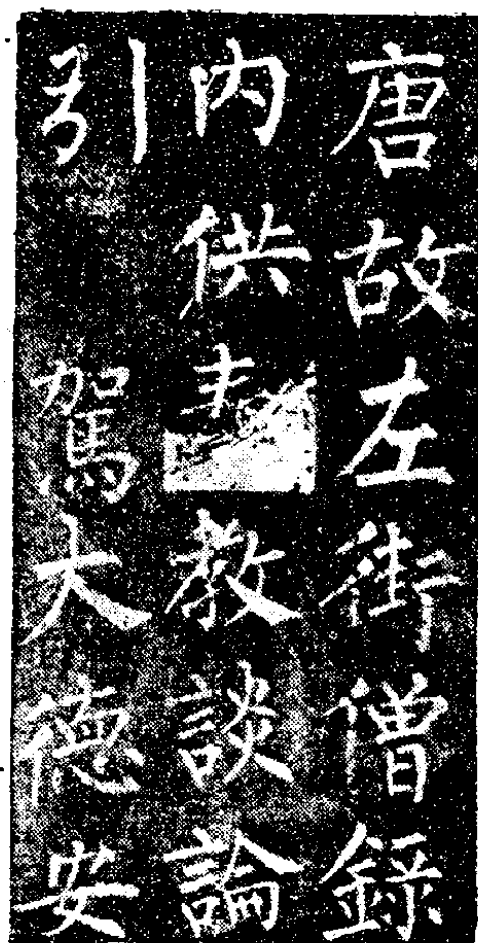 唐故左街僧錄
内供教談論
引駕大徳安